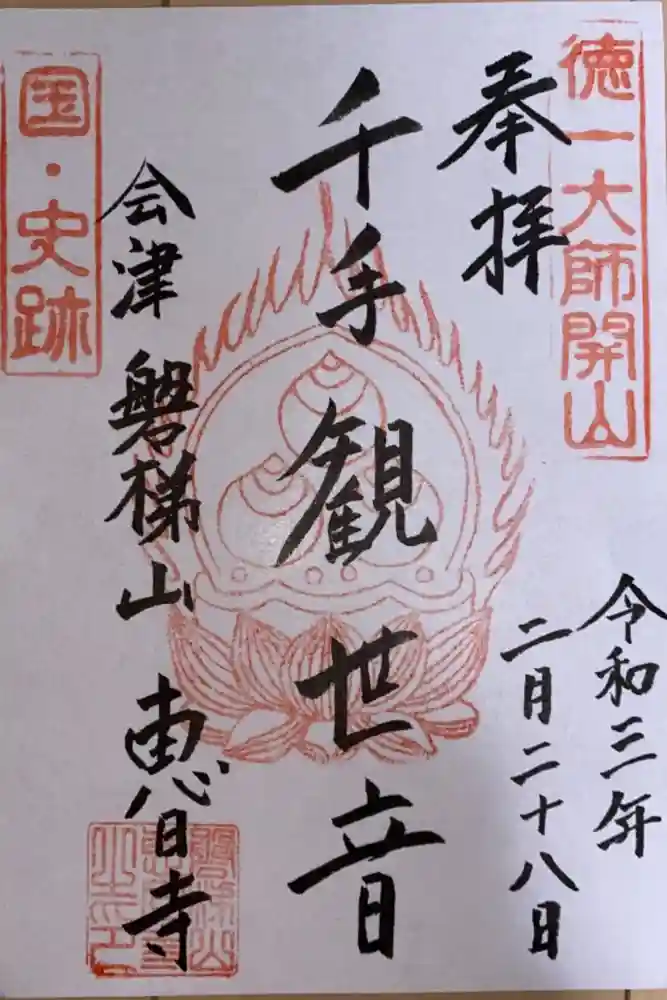 徳一大師開山
奉拝
令和三年
二月二十八日
千手観世音
会津磐梯山恵日寺
国・史跡